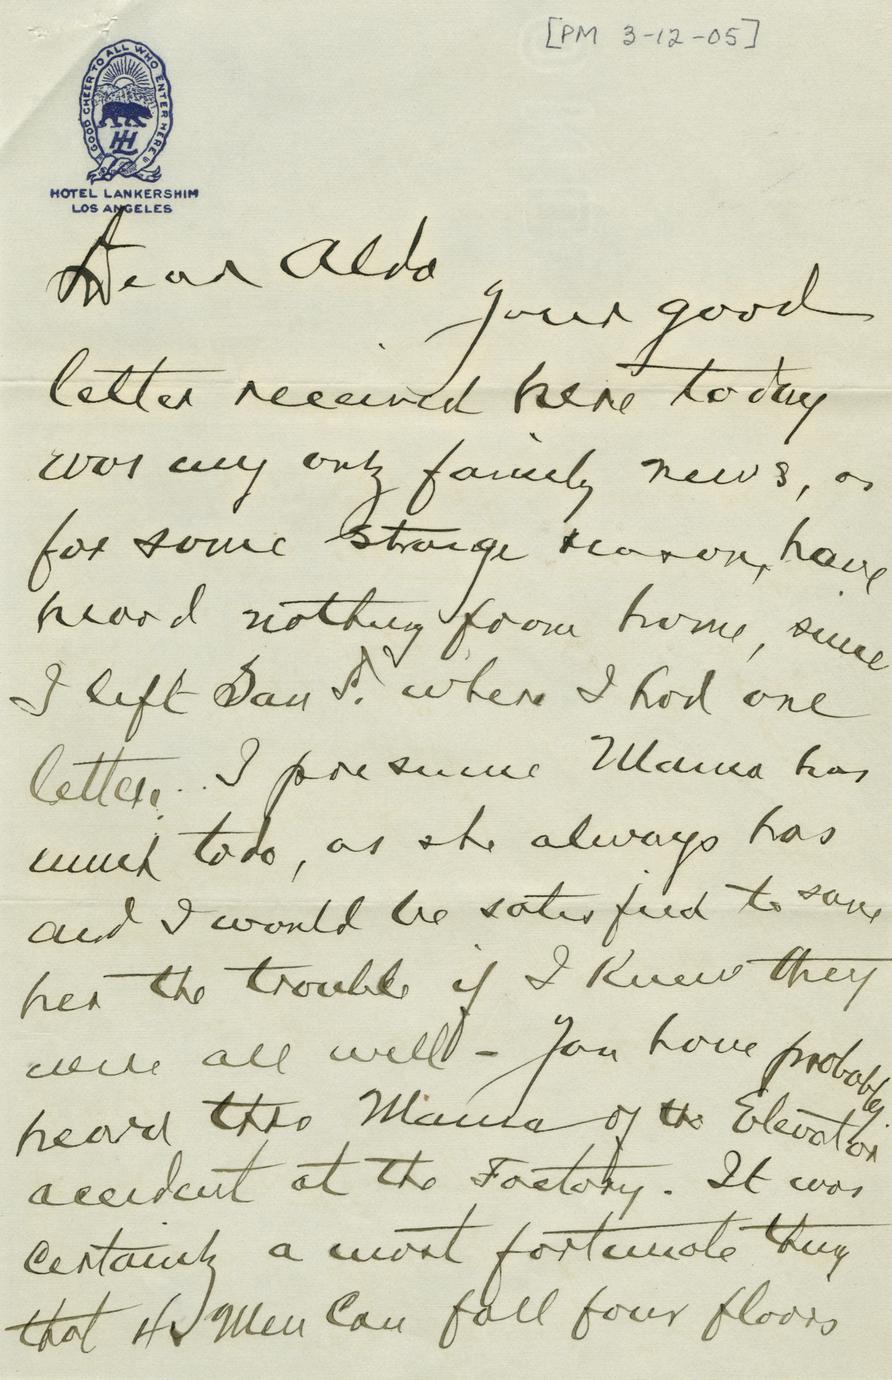 [PM 3-12-05]
"GOOD CHEER TO ALL WHO ENTER HERE"
HL
HOTEL LANKERSHIM
LOS ANGELES
Dear Aldo
Your good
letter received here today
was my only family news, as
for some strange reason, have
heard nothing from home, since
I left San F. where I had one
letter. I presume Mama has
much to do, as she always has
and I would be satisfied to save
her the trouble if I knew they
were all well - You have probably
heard thro Mama of the Elevator
accident at the Factory. It was
certainly a most fortunate thing
that Men Can fall four floors